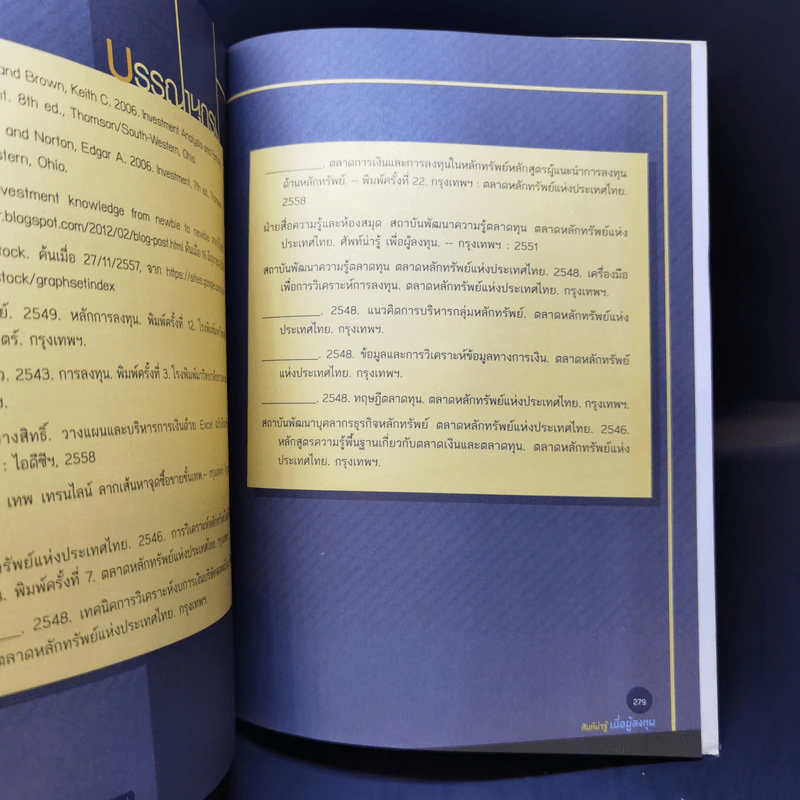 บรรณานุกรม
and Brown, Keith C. 2006. Investment Analysis and
nt. 8th ed., Thomson/South-Western, Ohio.
and Norton, Edgar A. 2006. Investment, 7th ed.,
stern, Ohio.
nvestment knowledge from newbie to newbie
r.blogspot.com/2012/02/blog-post.html ค้นเมื่อ 16
tock. ค้นเมื่อ 27/11/2557, จาก https://sites.google.com
stock/graphsetindex
ย์. 2549. หลักการลงทุน. พิมพ์ครั้งที่ 12.
ตร์. กรุงเทพฯ.
ว. 2543. การลงทุน. พิมพ์ครั้งที่ 3.
ฯ.
างสิทธิ์. วางแผนและบริหารการเงินด้วย Excel
: ไอดีซีฯ, 2558
เทพ เทรนไลน์ ลากเส้นหาจุดซื้อขายขั้นเทพ.--
ทรัพย์แห่งประเทศไทย. 2546. การวิเคราะห์
น. พิมพ์ครั้งที่ 7. ตลาดหลักทรัพย์แห่งประเทศไทย.
____. 2548. เทคนิคการวิเคราะห์งบการเงิน
ตลาดหลักทรัพย์แห่งประเทศไทย. กรุงเทพฯ.
________. ตลาดการเงินและการลงทุนในหลักทรัพย์หลักสูตรผู้แนะนำการลงทุน
ด้านหลักทรัพย์. -- พิมพ์ครั้งที่ 22. กรุงเทพฯ : ตลาดหลักทรัพย์แห่งประเทศไทย.
2558
ฝ่ายสื่อความรู้และห้องสมุด สถาบันพัฒนาความรู้ตลาดทุน ตลาดหลักทรัพย์แห่ง
ประเทศไทย. ศัพท์น่ารู้ เพื่อผู้ลงทุน. -- กรุงเทพฯ : 2551
สถาบันพัฒนาความรู้ตลาดทุน ตลาดหลักทรัพย์แห่งประเทศไทย. 2548. เครื่องมือ
เพื่อการวิเคราะห์การลงทุน. ตลาดหลักทรัพย์แห่งประเทศไทย. กรุงเทพฯ.
________. 2548. แนวคิดการบริหารกลุ่มหลักทรัพย์. ตลาดหลักทรัพย์แห่ง
ประเทศไทย. กรุงเทพฯ.
________. 2548. ข้อมูลและการวิเคราะห์ข้อมูลทางการเงิน. ตลาดหลักทรัพย์
แห่งประเทศไทย. กรุงเทพฯ.
________. 2548. ทฤษฎีตลาดทุน. ตลาดหลักทรัพย์แห่งประเทศไทย. กรุงเทพฯ.
สถาบันพัฒนาบุคลากรธุรกิจหลักทรัพย์ ตลาดหลักทรัพย์แห่งประเทศไทย. 2546.
หลักสูตรความรู้พื้นฐานเกี่ยวกับตลาดเงินและตลาดทุน. ตลาดหลักทรัพย์แห่ง
ประเทศไทย. กรุงเทพฯ.
279
ศัพท์น่ารู้ เพื่อผู้ลงทุน